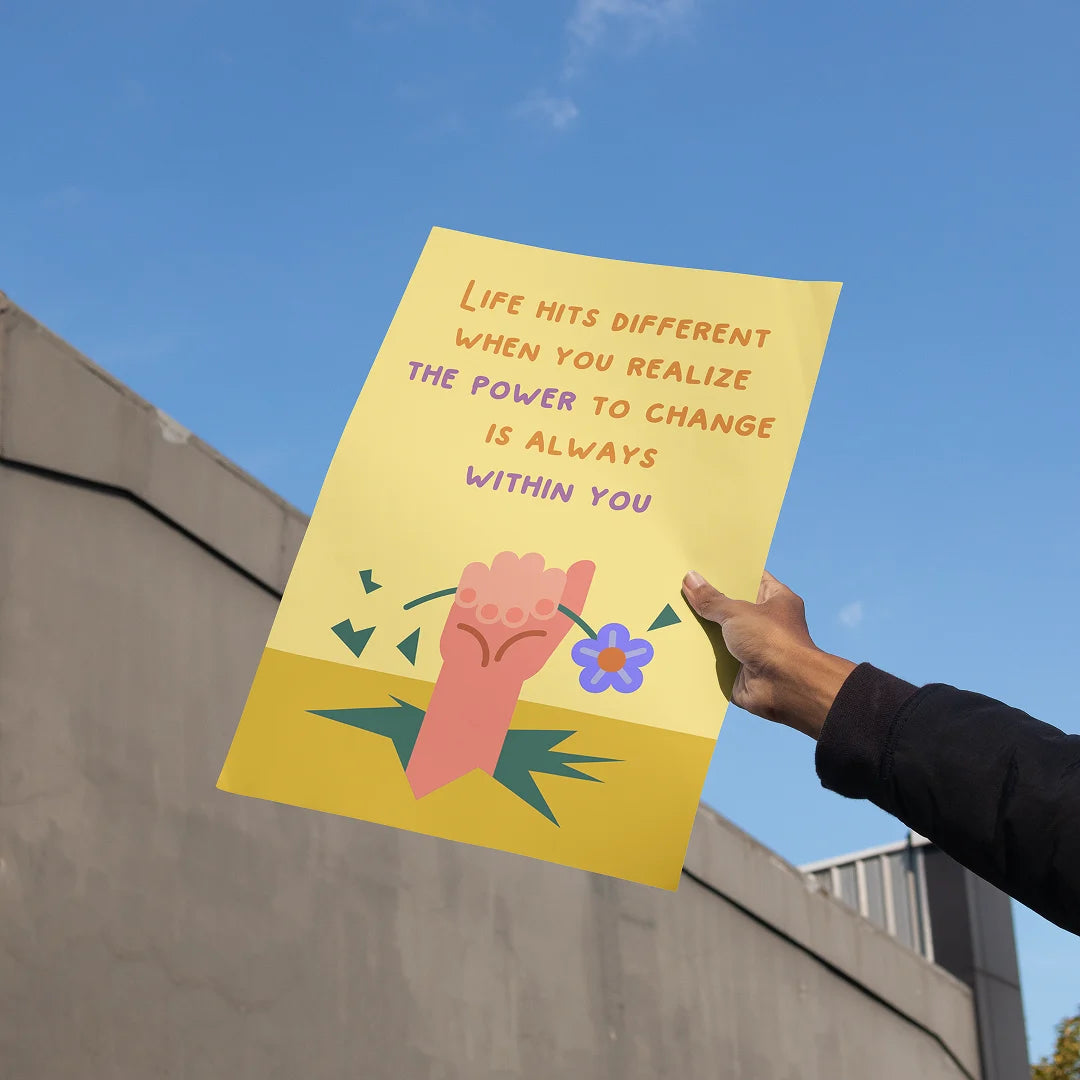 LIFE HITS DIFFERENT
WHEN YOU REALIZE
THE POWER TO CHANGE
IS ALWAYS
WITHIN YOU